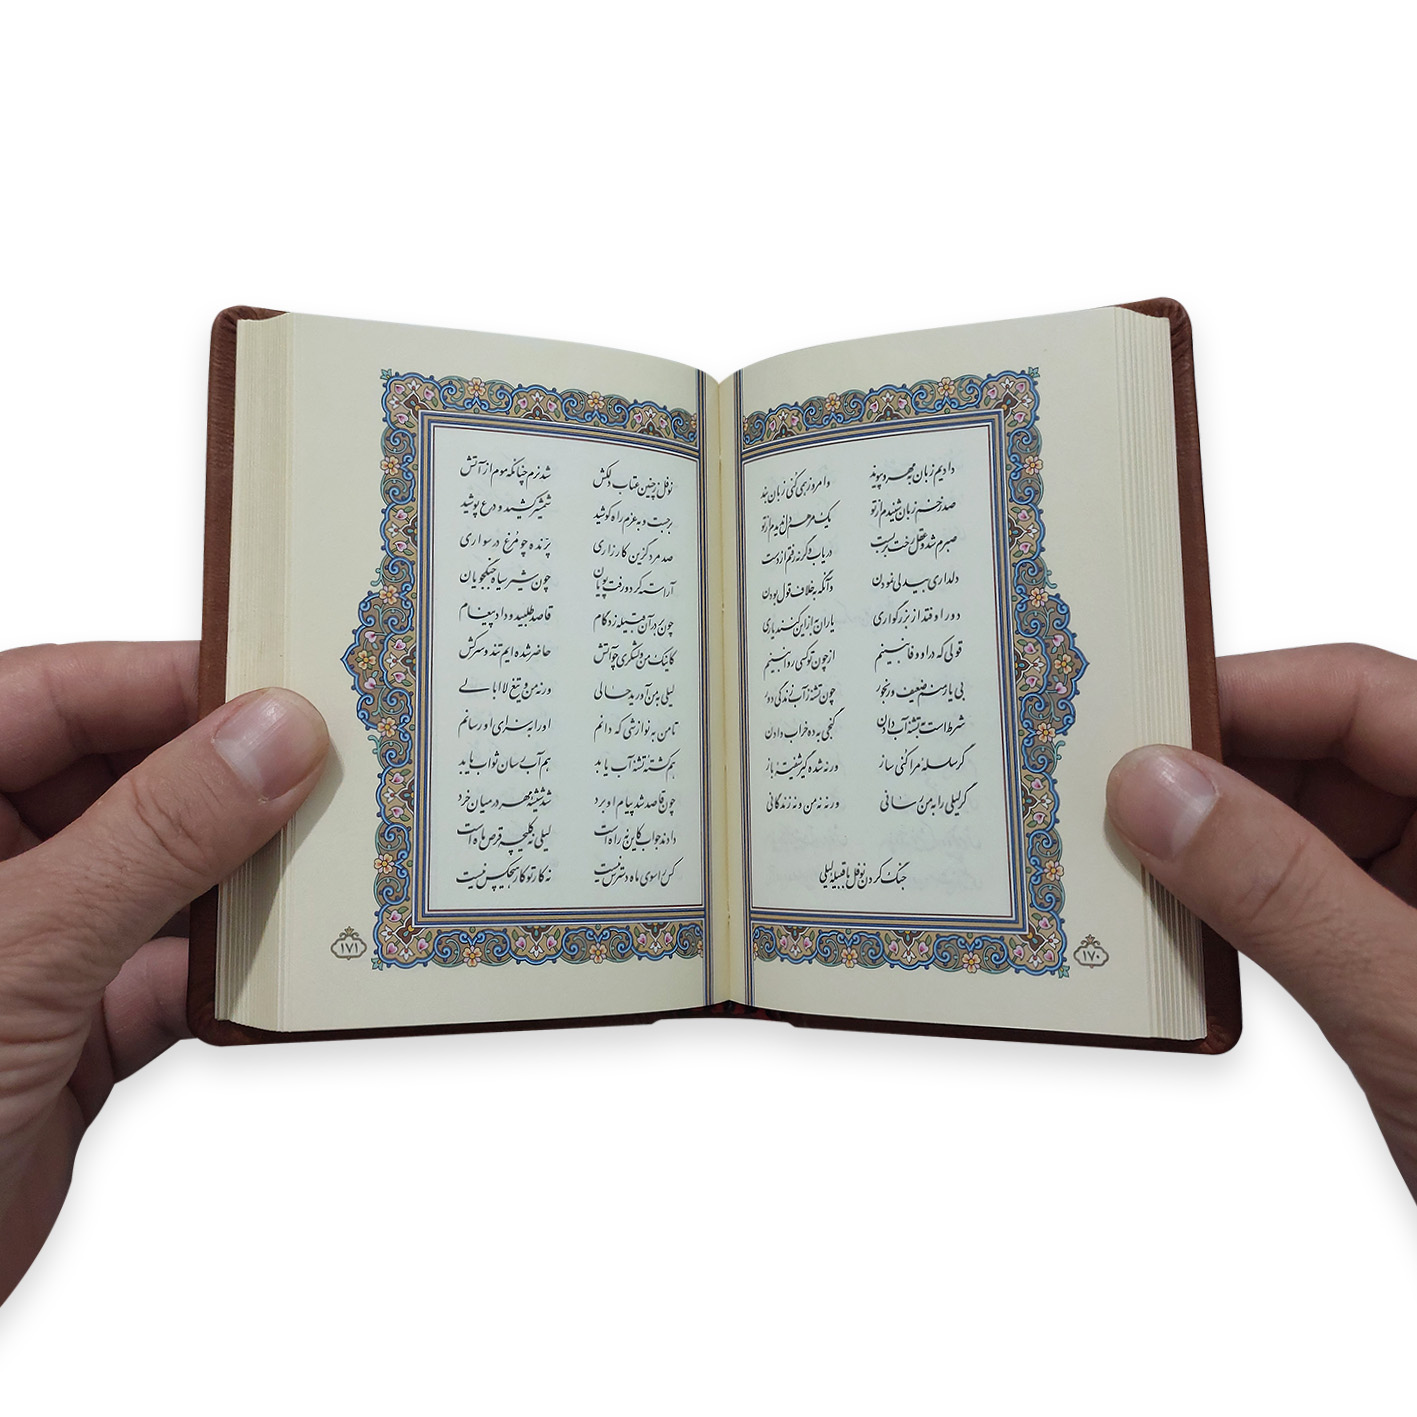 دادیم زبان به مهر و پیوند وامروز همی کنی زبان بند
صد زخم زبان شنیدم از تو یک مرهم دل ندیدم از تو
صبرم شد و عقل رخت بربست دریاب وگرنه رفتم از دست
دلداری بیدلی نمودن وآنگه به خلاف قول بودن
دور اوفتد از بزرگواری یاران به ازین کنند یاری
قولی که در او وفا نبینم از چون تو کسی روا نبینم
بی یار منم ضعیف و رنجور چون تشنه ز آب زندگی دور
شرط است به تشنه آب دادن گنجی به ده خراب دادن
گر سلسلهٔ مرا کنی ساز ورنه شده گیر شیفته باز
گر لیلی را به من رسانی ورنه نه من و نه زندگانی
جنگ کردن نوفل با قبیله لیلی
۱۷۰
نوفل ز چنین عتاب دلکش شد نرم چنانکه موم از آتش
برجست و به عزم راه کوشید شمشیر کشید و درع پوشید
صد مرد گزین کارزاری پرنده چو مرغ در سواری
آراسته کرد و رفت پویان چون شیر سیاه جنگجویان
چون بر در آن قبیله زد گام قاصد طلبید و داد پیغام
کاینک من و لشگری چو آتش حاضر شده ایم تند و سرکش
لیلی به من آورید حالی ورنه من و تیغ لاابالی
تا من به نوازشی که دانم او را به سزای او رسانم
هم کشتهٔ تشنه آب یابد هم آب رسان ثواب یابد
چون قاصد شد پیام او برد شد شیشه مهر در میان خرد
دادند جواب کاین نه راه است لیلی نه کلیچه قرص ماه است
کس را سوی ماه دسترس نیست نه کار تو کار هیچکس نیست
۱۷۱